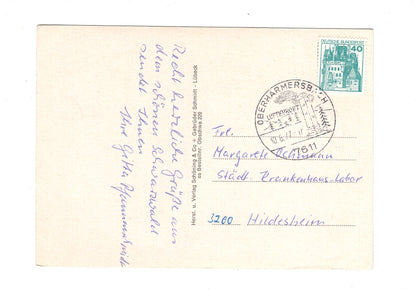 Recht herzliche Grüße aus
dem schönen Schwarzwald
sendet Ihnen
Ihre Gitta
Herst. u. Verlag Schöning & Co + Gebrüder Schmidt - Lübeck
DEUTSCHE BUNDESPOST
40
OBERHARMERSBACH
LUFTKURORT
7611
Frl.
Margarete
Städt. Krankenhaus-Labor
3200 Hildesheim